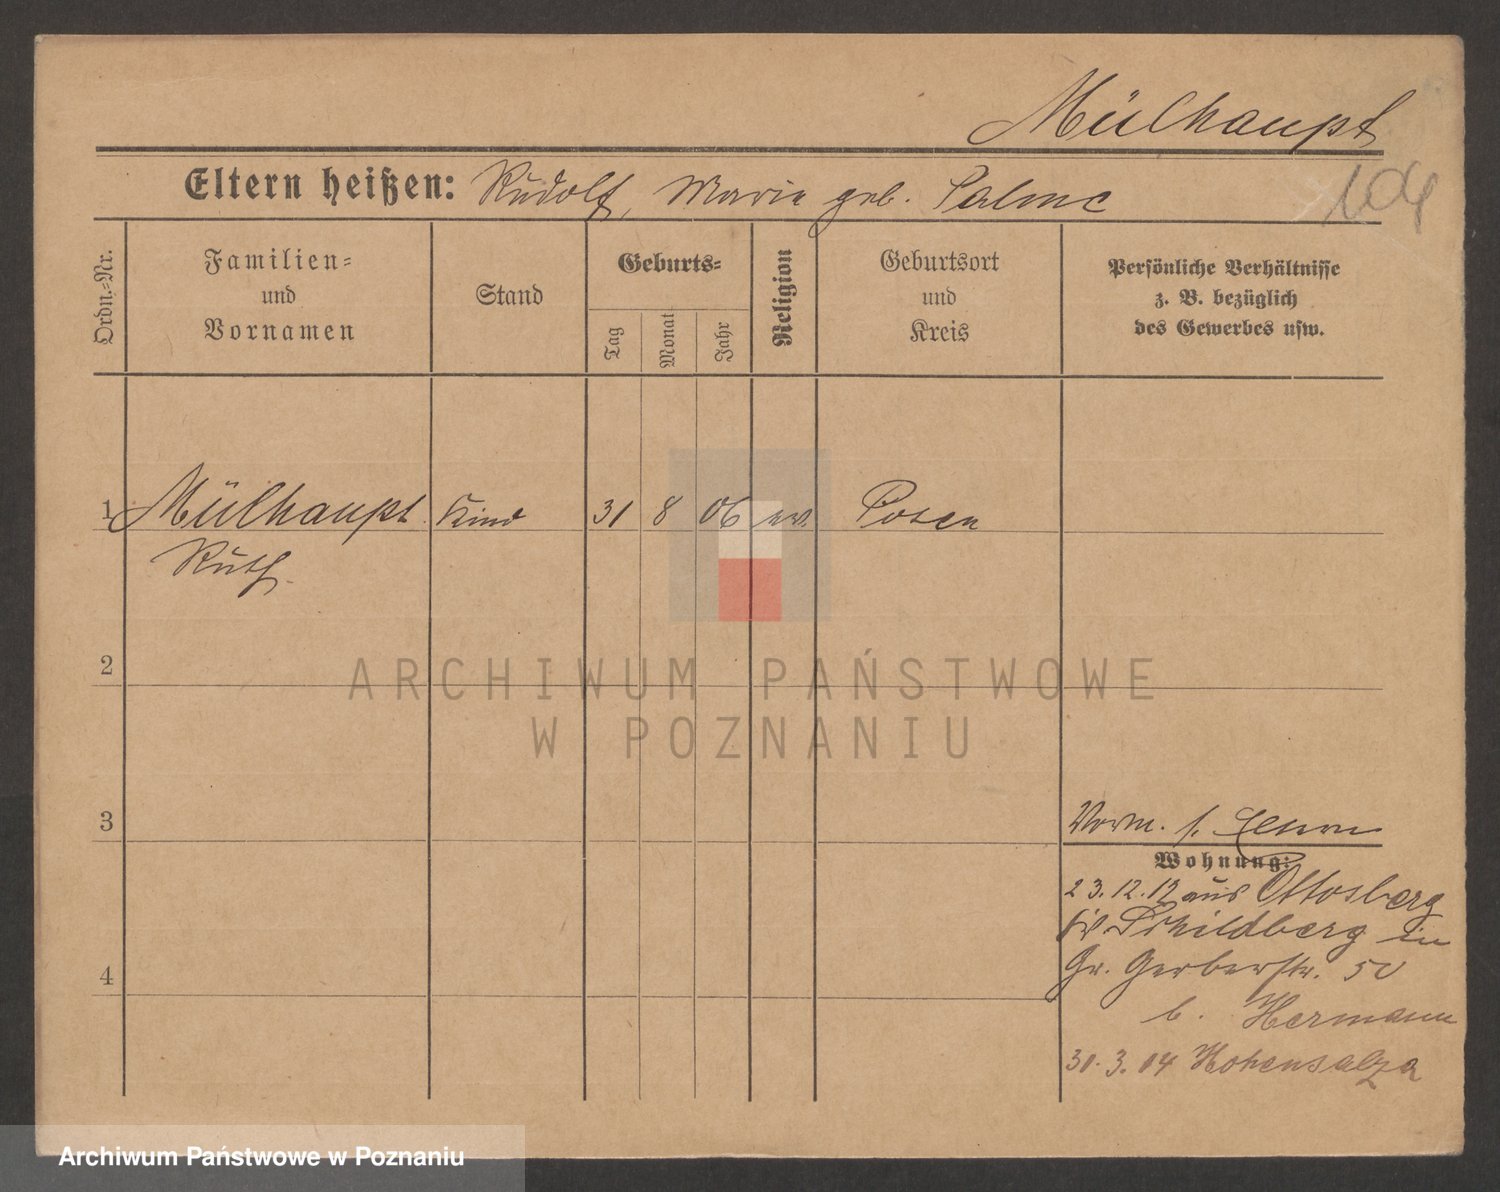 Mülhaupt
Eltern heißen: Rudolf, Marie geb. Palme
104
Ordn.-Nr.
Familien-
und
Vornamen
Stand
Geburts-
Tag
Monat
Jahr
Religion
Geburtsort
und
Kreis
Persönliche Verhältnisse
z. B. bezüglich
des Gewerbes usw.
1 Mülhaupt Kind 31 8 06 ev. Posen
Ruth.
2
ARCHIWUM PAŃSTWOWE
W POZNANIU
3
Vorm. s.
Wohnung:
23.12.12 aus Ottosberg
Schildberg in
4
Gr. Gerberstr. 50
b. Hermann
30.3.14 Hohensalza
Archiwum Państwowe w Poznaniu